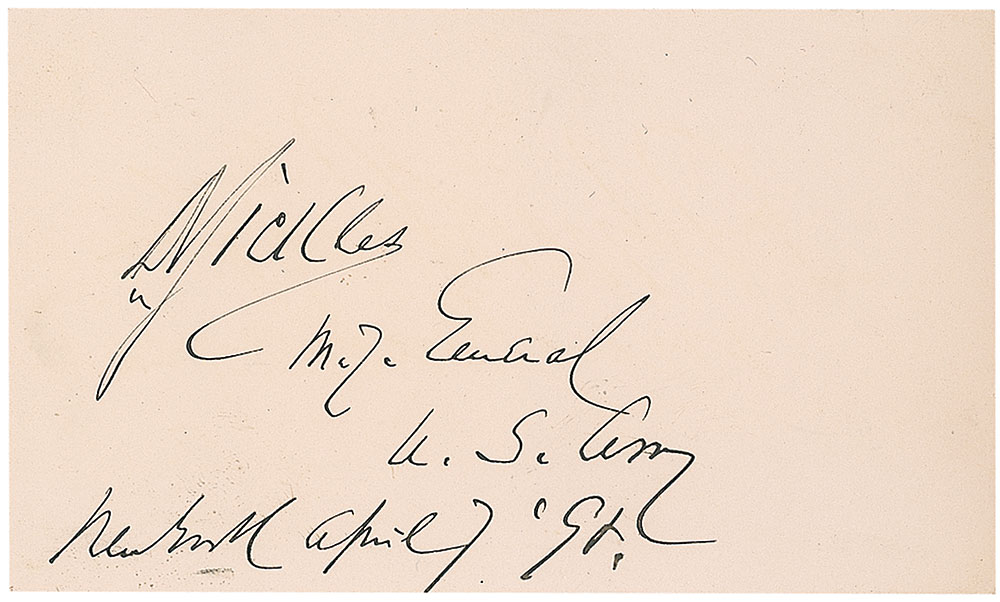 D Sickles
Maj. General
U. S. Army
New York April 7